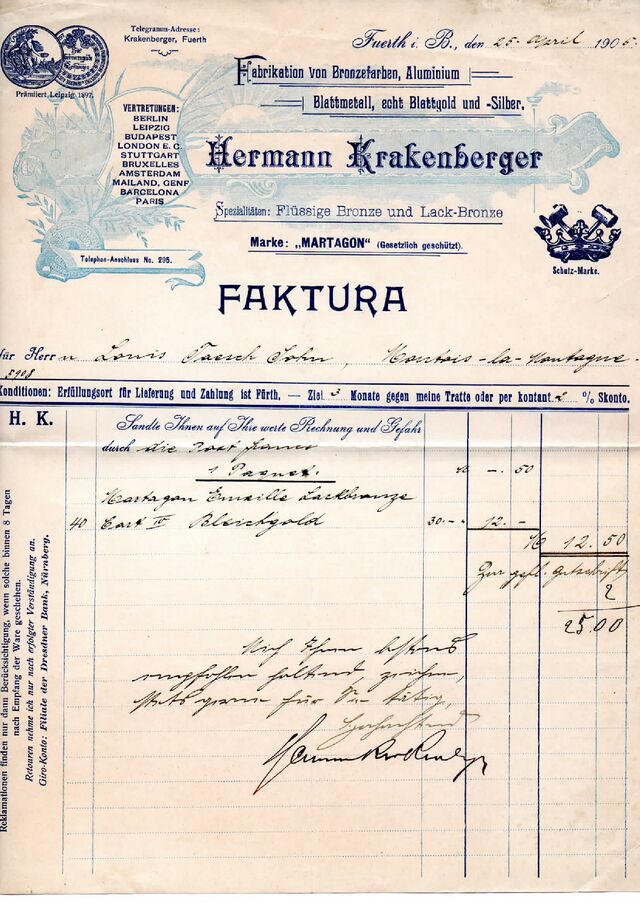 Telegramm-Adresse:
Krakenberger, Fuerth
Fuerth i. B., den 25. April 1905.
Prämiiert Leipzig 1897.
Fabrikation von Bronzefarben, Aluminium
Blattmetall, echt Blattgold und -Silber.
VERTRETUNGEN:
BERLIN
LEIPZIG
BUDAPEST
LONDON E. C.
STUTTGART
BRUXELLES
AMSTERDAM
MAILAND, GENF
BARCELONA
PARIS
Hermann Krakenberger
Spezialitäten: Flüssige Bronze und Lack-Bronze
Marke: „MARTAGON" (Gesetzlich geschützt).
Telephon-Anschluss No. 295.
Schutz-Marke.
FAKTURA
für Herrn Louis Taesch Sohn, Montois-la-Montagne.
5908
Konditionen: Erfüllungsort für Lieferung und Zahlung ist Fürth. — Ziel 3 Monate gegen meine Tratte oder per kontant 2 % Skonto.
H. K.
Sandte Ihnen auf Ihre werte Rechnung und Gefahr
durch die Post franco
1 Paquet. M -.50
Martagon Emaille Lackbronze
40 Cart IV Bleichgold 30.- 12.-
M 12.50
Zur gefl. Gutschrift
2
25.00
Mich Ihnen bestens
empfohlen haltend, zeichne,
stets gerne für Sie tätig,
Hochachtend
Hermann Krakenberger
Reklamationen finden nur dann Berücksichtigung, wenn solche binnen 8 Tagen
nach Empfang der Ware geschehen.
Retouren nehme ich nur nach erfolgter Verständigung an.
Giro-Konto: Filiale der Dresdner Bank, Nürnberg.